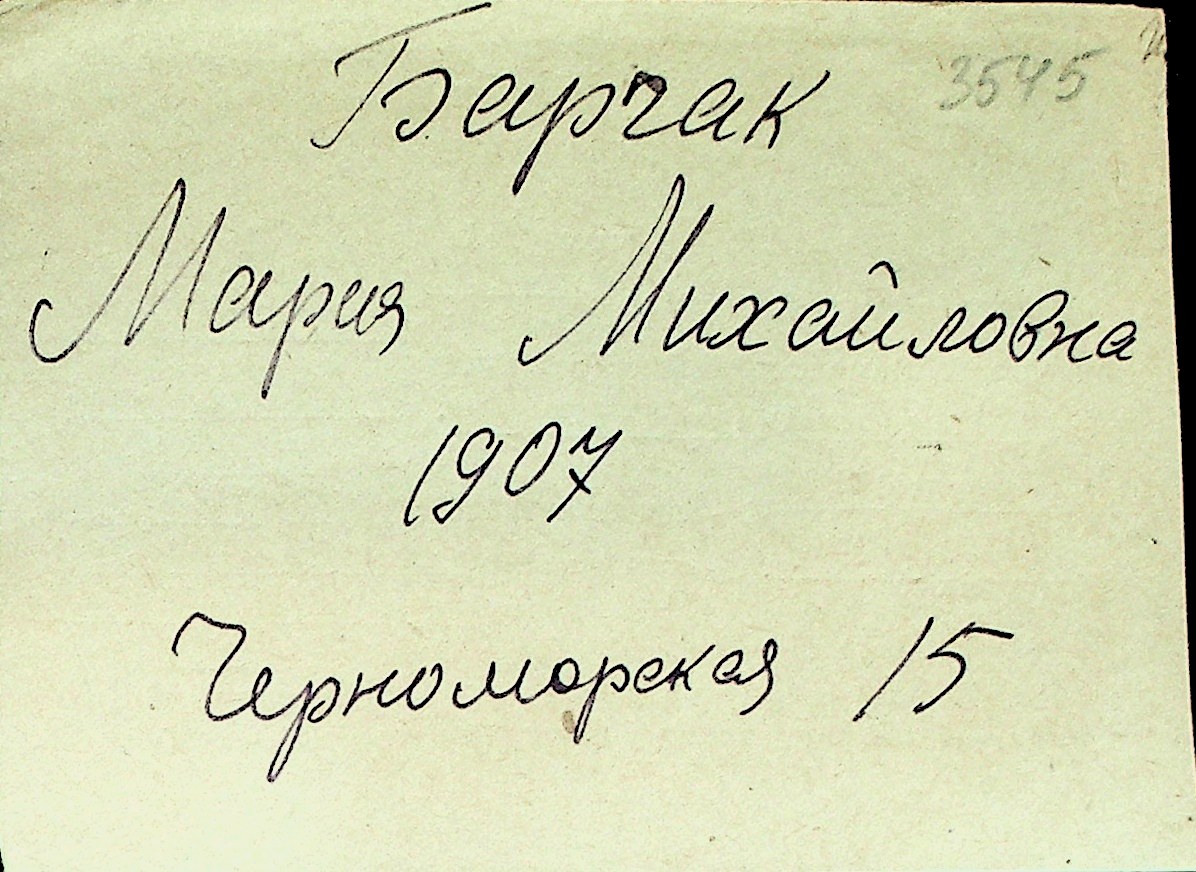 3545
Барчак
Мария Михайловна
1907
Черноморская 15